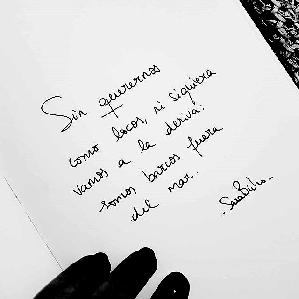 Sin querernos
como locos, ni siquiera
vamos a la deriva:
somos barcos fuera
del mar.